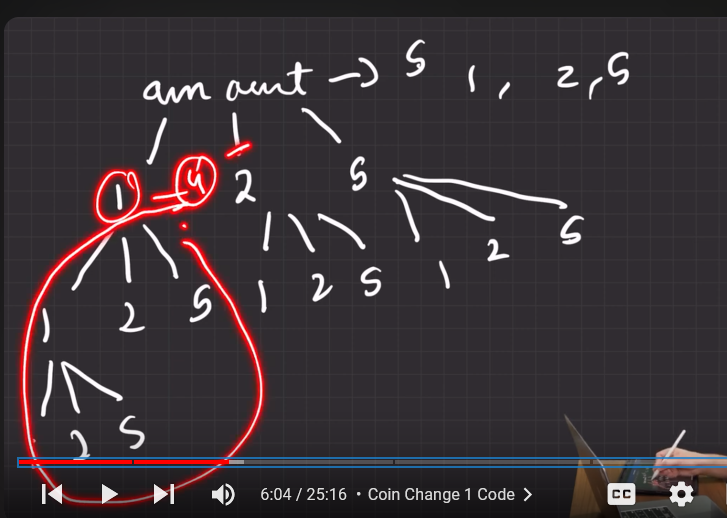 amount → 5 1, 2, 5
1 4 2 5
1 2 5 1 2 5 1 2 5
2 5
6:04 / 25:16 • Coin Change 1 Code
CC